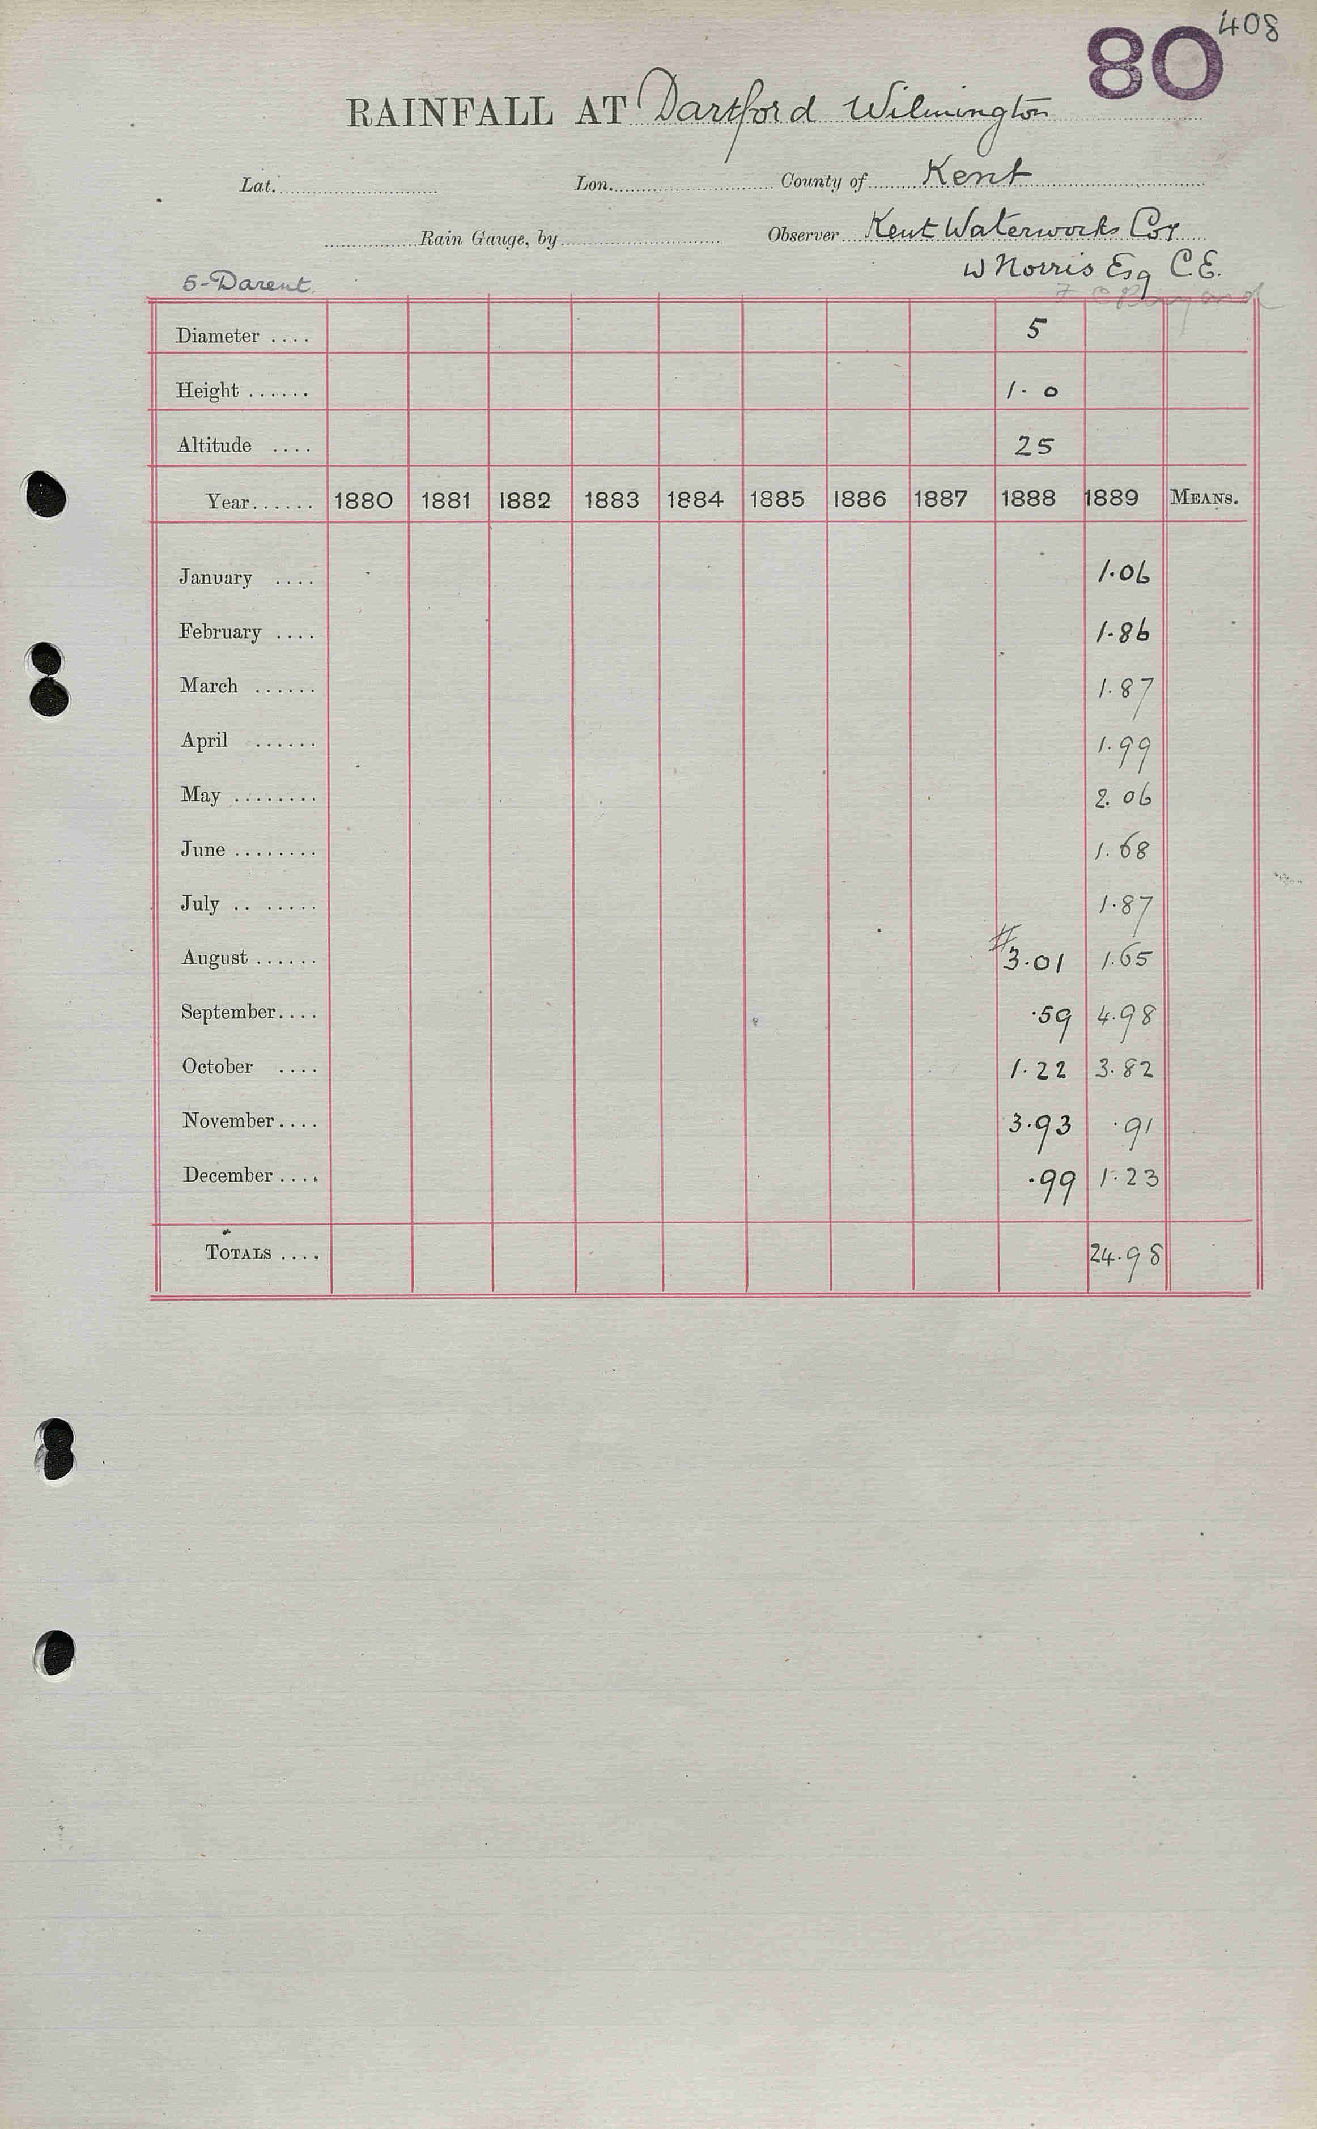 408
80
RAINFALL AT Dartford Wilmington
Lat. Lon. County of Kent
Rain Gauge, by Observer Kent Waterworks Coy
W Norris Esq C.E.
5-Darent
Diameter .... 5
Height ...... 1.0
Altitude .... 25
Year...... 1880 1881 1882 1883 1884 1885 1886 1887 1888 1889 MEANS.
January .... 1.06
February .... 1.86
March ...... 1.87
April ...... 1.99
May ........ 2.06
June ........ 1.68
July .. ..... 1.87
August ...... #3.01 1.65
September.... .59 4.98
October .... 1.22 3.82
November.... 3.93 .91
December.... .99 1.23
TOTALS .... 24.98